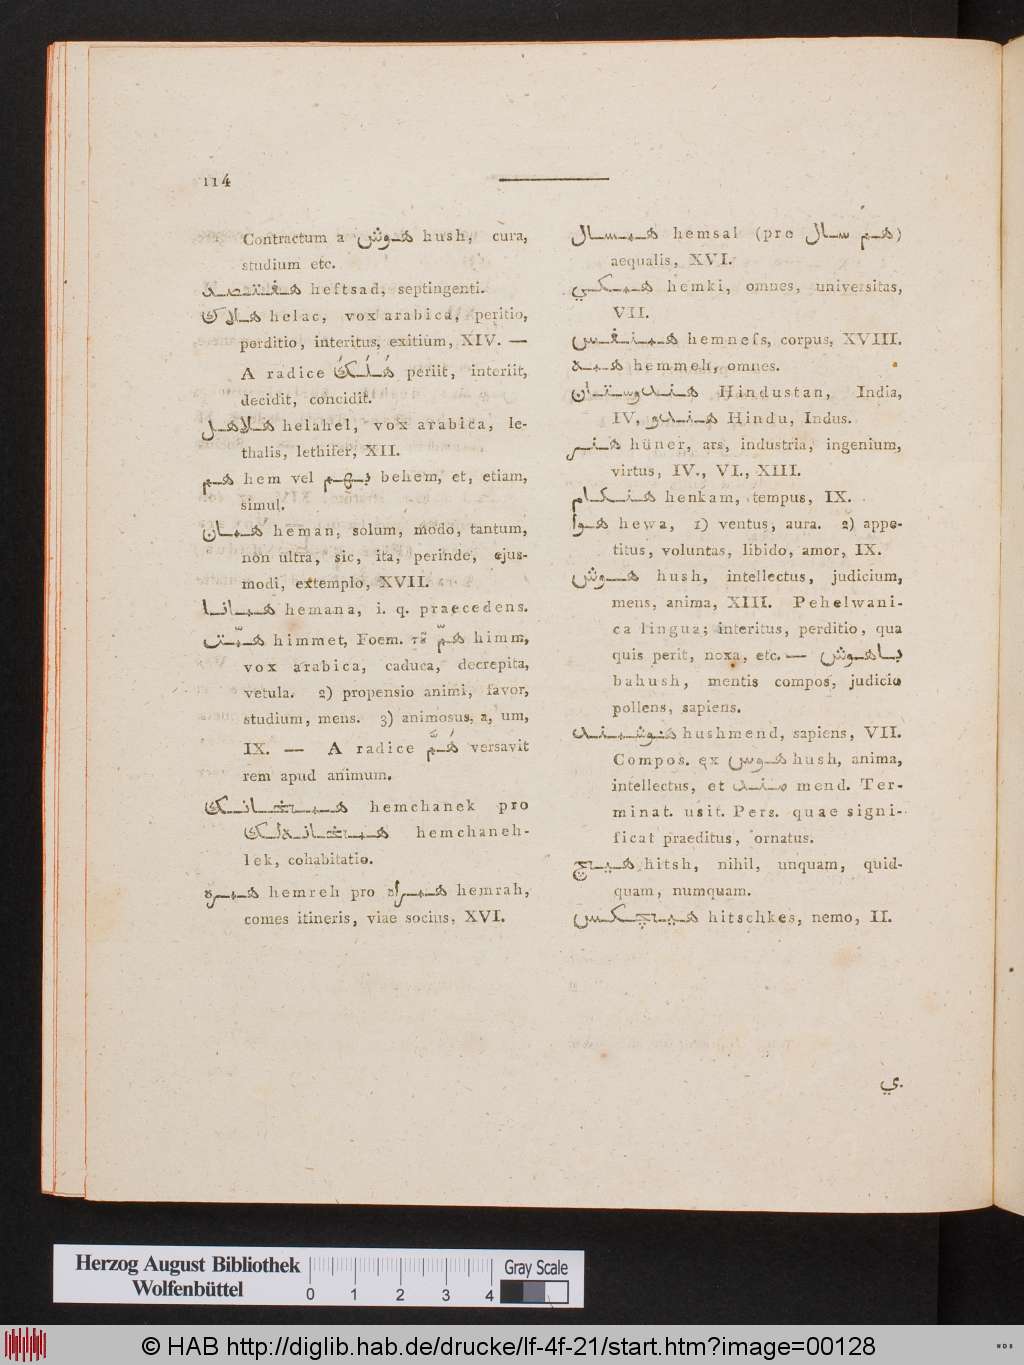 114
Contractum a هوش hush, cura,
studium etc.
هفتصد heftsad, septingenti.
هلاك helac, vox arabica, peritio,
perditio, interitus, exitium, XIV. —
A radice هَلَكَ periit, interiit,
decidit, concidit.
هلاهل helahel, vox arabica, le-
thalis, lethifer, XII.
هم hem vel بهم behem, et, etiam,
simul.
همان heman, solum, modo, tantum,
non ultra, sic, ita, perinde, ejus-
modi, extemplo, XVII.
همانا hemana, i. q. praecedens.
همّت himmet, Foem. τȣ همّ himm,
vox arabica, caduca, decrepita,
vetula. 2) propensio animi, favor,
studium, mens. 3) animosus, a, um,
IX. — A radice هَمَّ versavit
rem apud animum.
همخانك hemchanek pro
همخانه‌لك hemchaneh-
lek, cohabitatio.
همره hemreh pro همراه hemrah,
comes itineris, viae socius, XVI.
همسال hemsal (pro هم سال)
aequalis, XVI.
همكي hemki, omnes, universitas,
VII.
همنفس hemnefs, corpus, XVIII.
همه hemmeh, omnes.
هندوستان Hindustan, India,
IV, هندو Hindu, Indus.
هنر hüner, ars, industria, ingenium,
virtus, IV., VI., XIII.
هنكام henkam, tempus, IX.
هوا hewa, 1) ventus, aura. 2) appe-
titus, voluntas, libido, amor, IX.
هوش hush, intellectus, judicium,
mens, anima, XIII. Pehelwani-
ca lingua; interitus, perditio, qua
quis perit, noxa, etc. — باهوش
bahush, mentis compos, judicio
pollens, sapiens.
هوشمند hushmend, sapiens, VII.
Compos. ex هوس hush, anima,
intellectus, et مند mend. Ter-
minat. usit. Pers. quae signi-
ficat praeditus, ornatus.
هيچ hitsh, nihil, unquam, quid-
quam, numquam.
هيچكس hitschkes, nemo, II.
ي.
Herzog August Bibliothek
Wolfenbüttel
0 1 2 3 4
Gray Scale
© HAB http://diglib.hab.de/drucke/lf-4f-21/start.htm?image=00128